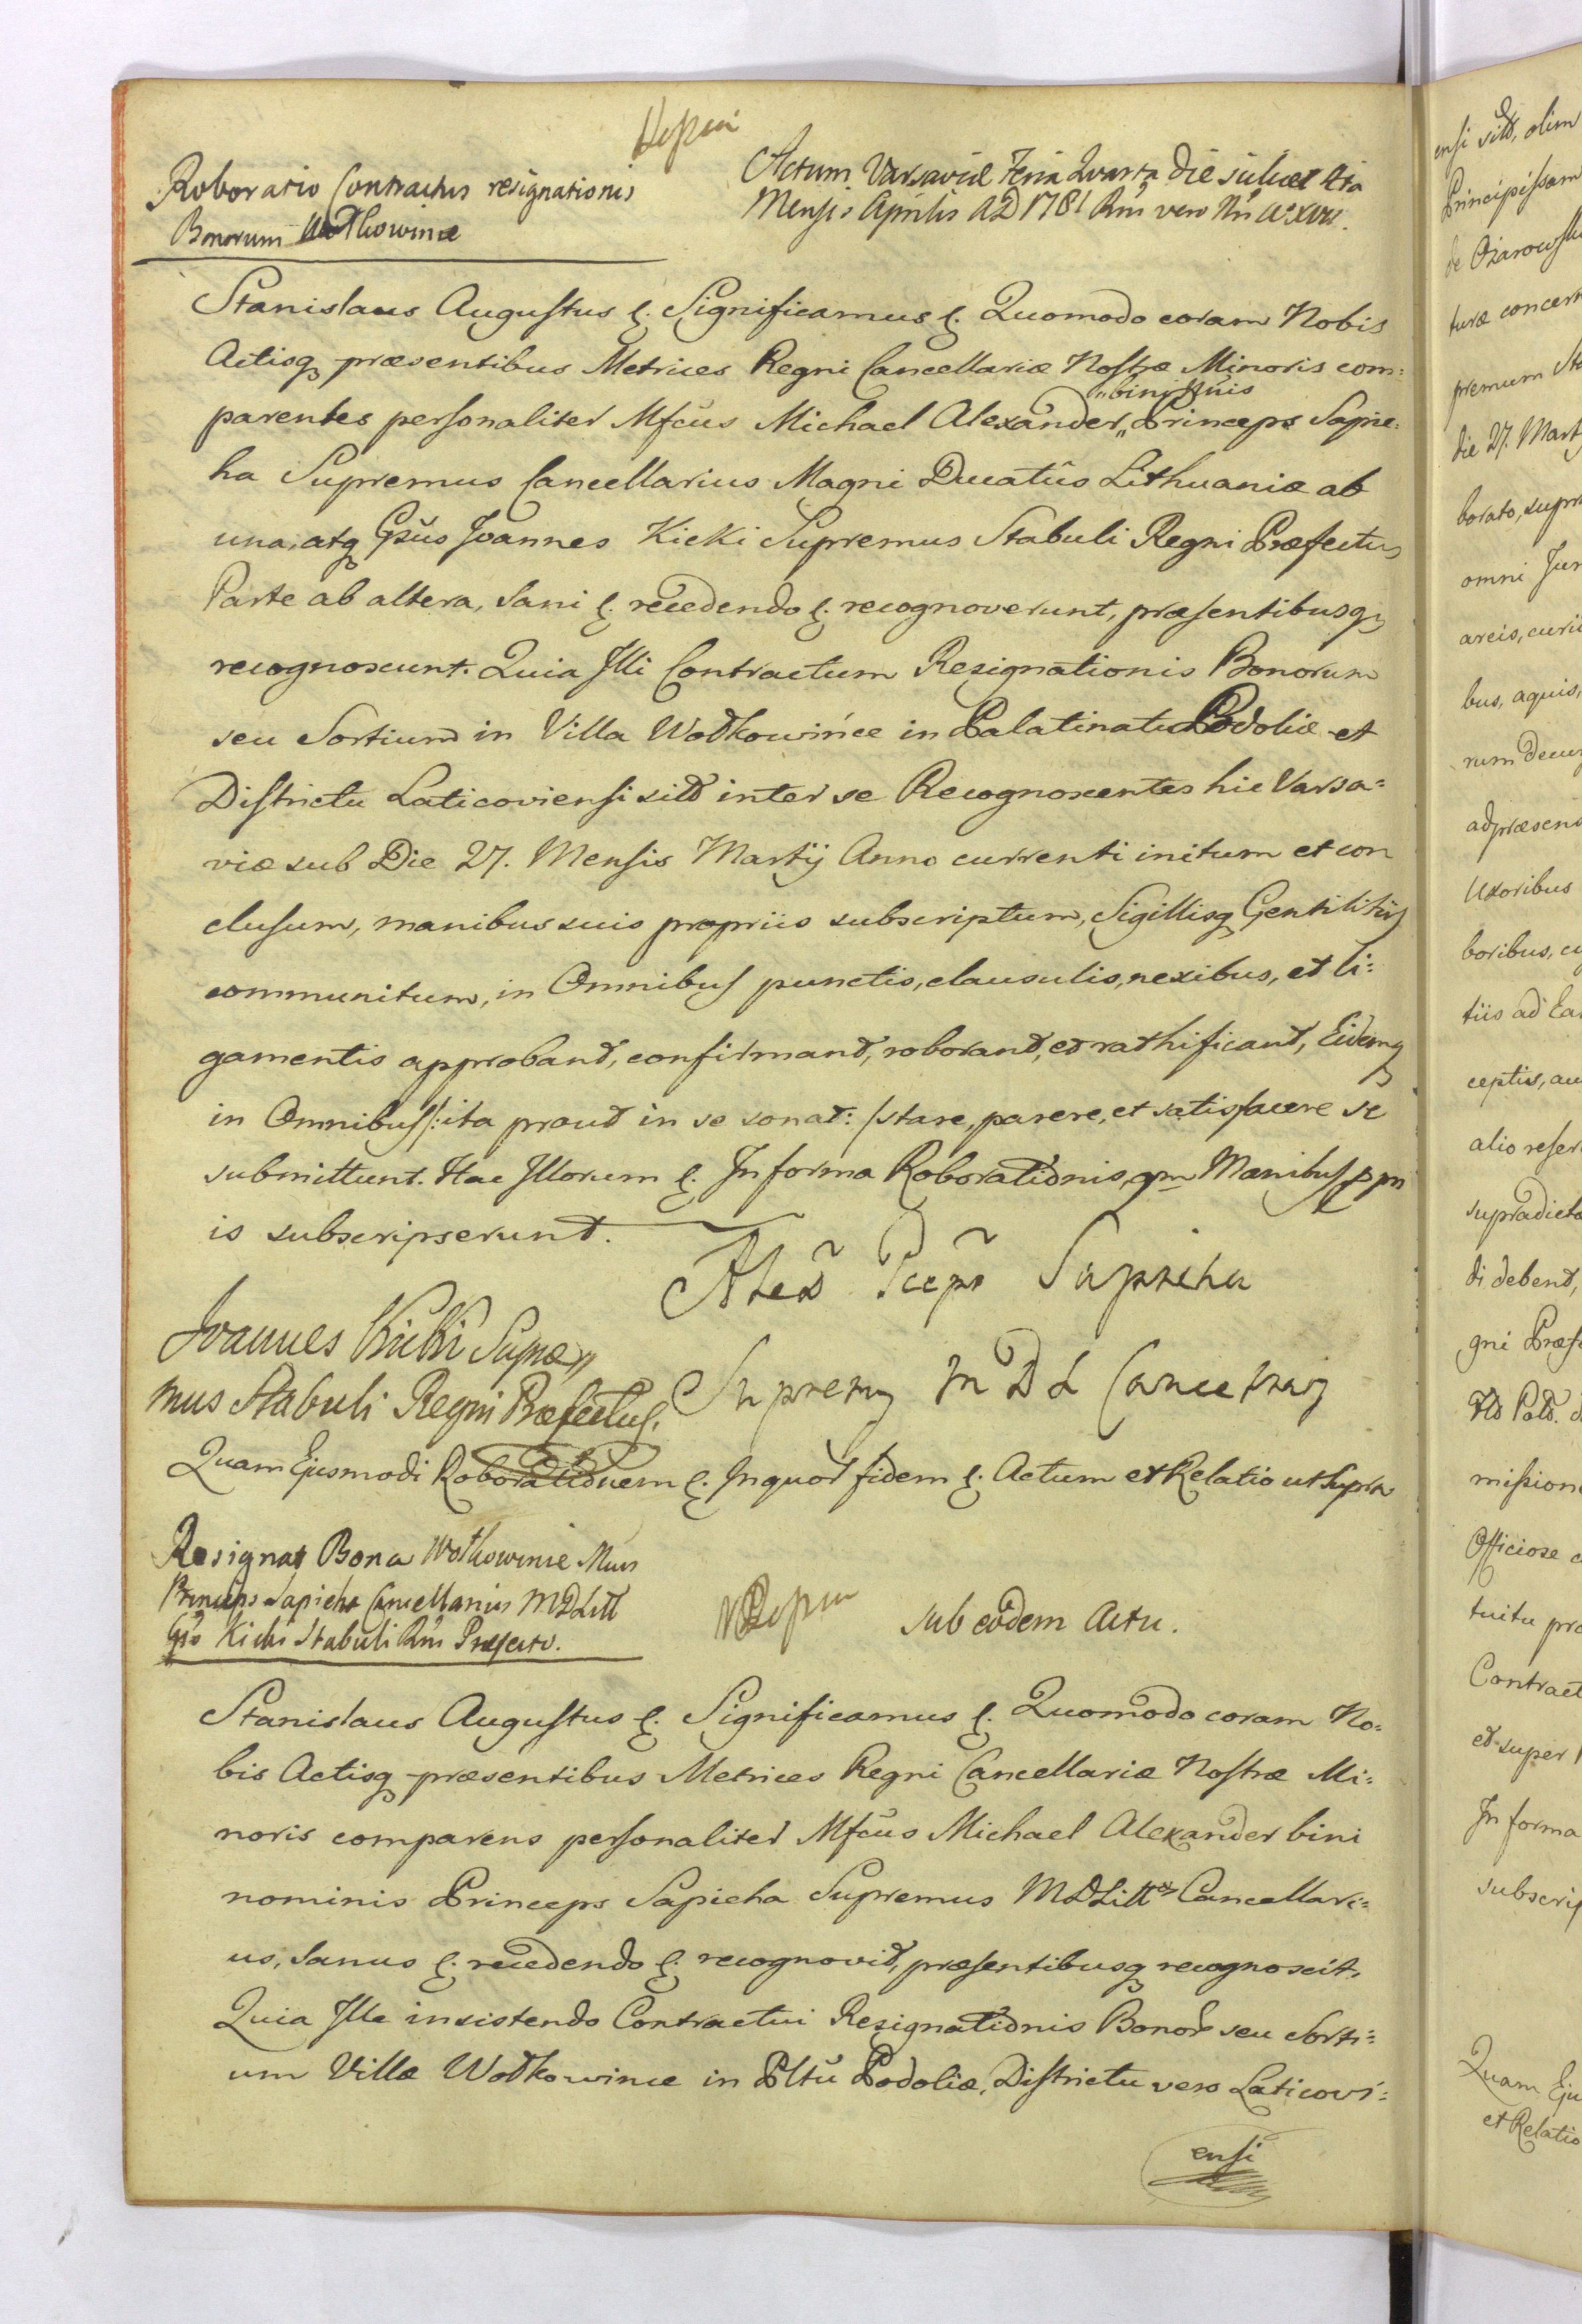 Roboratio Contractus resignationis
Bonorum Wodkowince
Actum Varsaviæ Feria Quarta Die scilicet 4ta
Mensis Aprilis AD 1781 Rni vero Nri Ao XVII.
Stanislaus Augustus &. Significamus &. Quomodo coram Nobis
Actisq præsentibus Metrices Regni Cancellariæ Nostræ Minoris com:
parentes personaliter Mfcus Michael Alexander " bini Nnis " Princeps Sapie:
ha Supremus Cancellarius Magni Ducatûs Lithuaniæ ab
una, atq Gsus Joannes Kicki Supremus Stabuli Regni Præfectus
Parte ab altera, Sani &. recedendo &. recognoverunt, præsentibusq
recognoscunt. Quia Illi Contractum Resignationis Bonorum
seu Sortium in Villa Wodkowińce in Palatinatu Podoliæ et
Districtu Laticoviensi sitt inter se Recognoscentes hic Varsa=
viæ sub Die 27. Mensis Martij Anno currenti initum et con
clusum, manibus suis propriis subscriptum, Sigillisq Gentilitijs
communitum, in Omnibus punctis, clausulis, nexibus, et li=
gamentis approband, confirmand, roborand, et rathificant, Eidemq
in Omnibus /: ita prout in se sonat: / stare, parere, et satisfacere se
submittunt. Hac Illorum &. In forma Roborationis, qm Manibus ppri
is subscripserunt.
Alex Pceps Sapieha
Suprem M D L Cancellarig
Joannes Kicki Supre"
mus Stabuli Regni Præfectus.
Quam Ejusmodi Roborationem &. In quor fidem &. Actum et Relatio ut Supra
Resignat Bona Wotkowince Mcus
Princeps Sapieha Cancellarius MDLitt
Gso Kicki Stabuli Rni Præfecto.
sub eodem Actu.
Stanislaus Augustus &. Significamus &. Quomodo coram No=
bis Actisq præsentibus Metrices Regni Cancellariæ Nostræ Mi=
noris comparens personaliter Mfcus Michael Alexander bini
nominis Princeps Sapieha Supremus MDLitt Cancellari=
us, Sanus &. recedendo &. recognovit, præsentibusq recognoscit,
Quia Ille insistendo Contractui Resignationis Bonor seu Sorti=
um Villæ Wodkowince in Pltu Podoliæ, Districtu vero Laticovi=
ensi
ensi sitt, olim
Principissam
de Ożarowsk
turæ concern
premum Sta
die 27. Mart
borato, supr
omni Jur
areis, curi
bus, aquis,
rum decur
ad præsens
Uxoribus
boribus, cu
tiis ad Ea
ceptis, au
alio reser
supradicto
di debent,
gni Præf
missione
Officiose
tuitu pro
Contract
et super
In forma
subscrip
Quam Eju
et Relatio